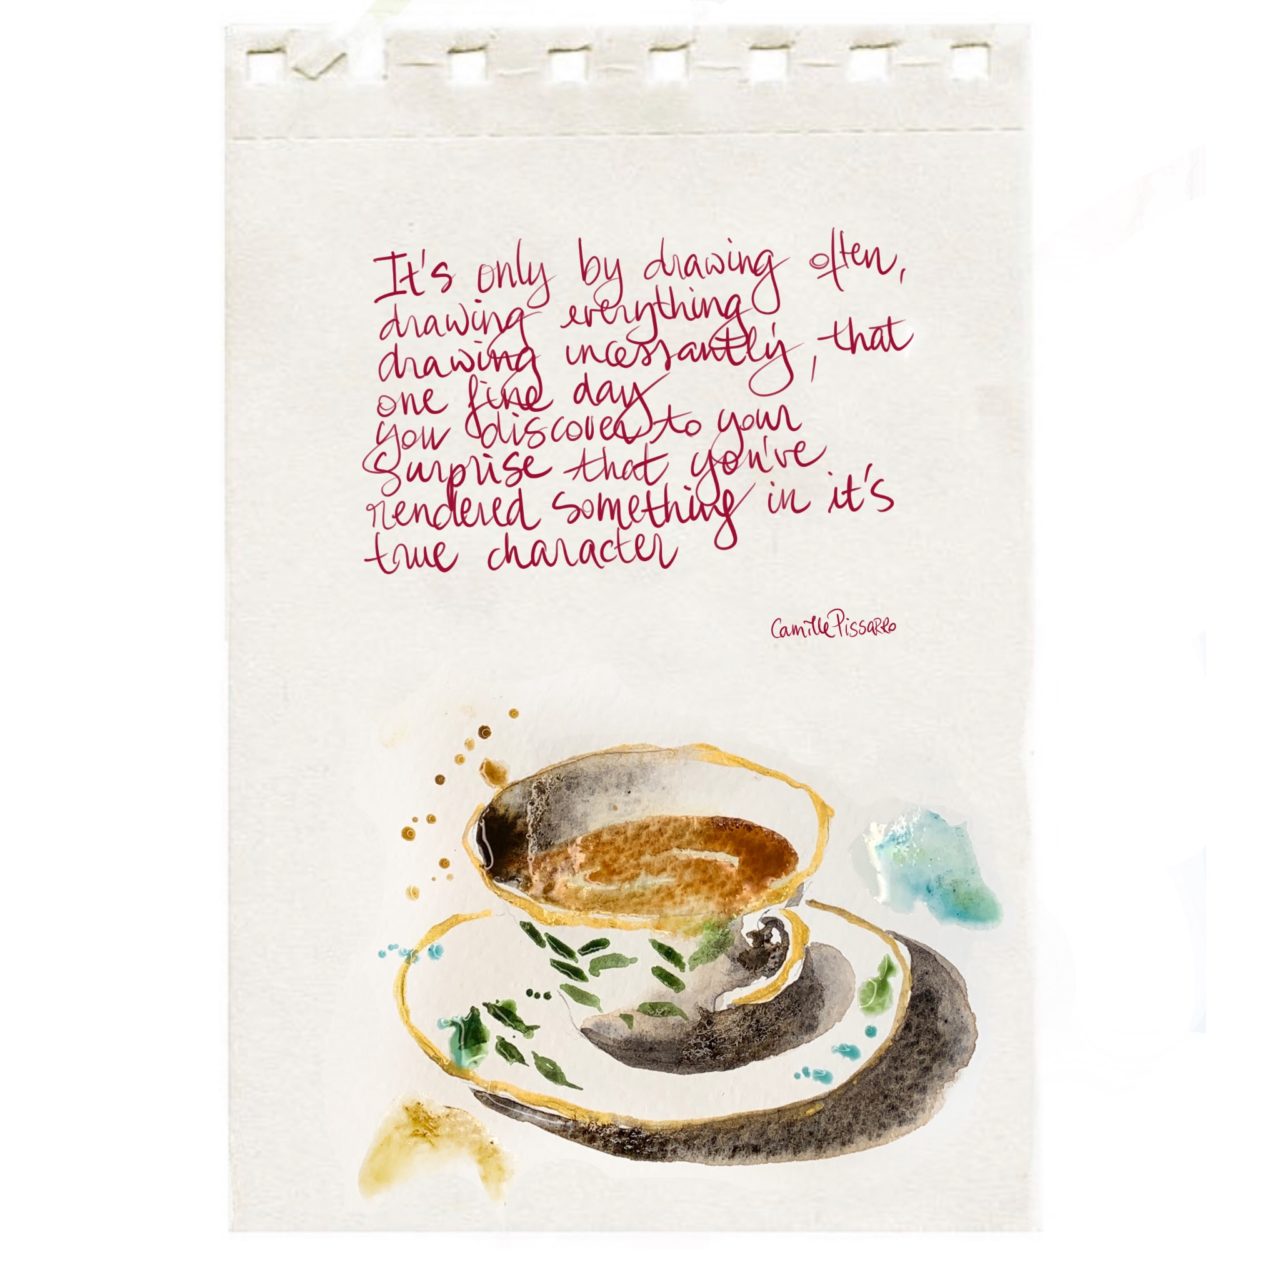 It's only by drawing often,
drawing everything
drawing incessantly, that
one fine day
you discover to your
surprise that you've
rendered something in it's
true character
Camille Pissarro